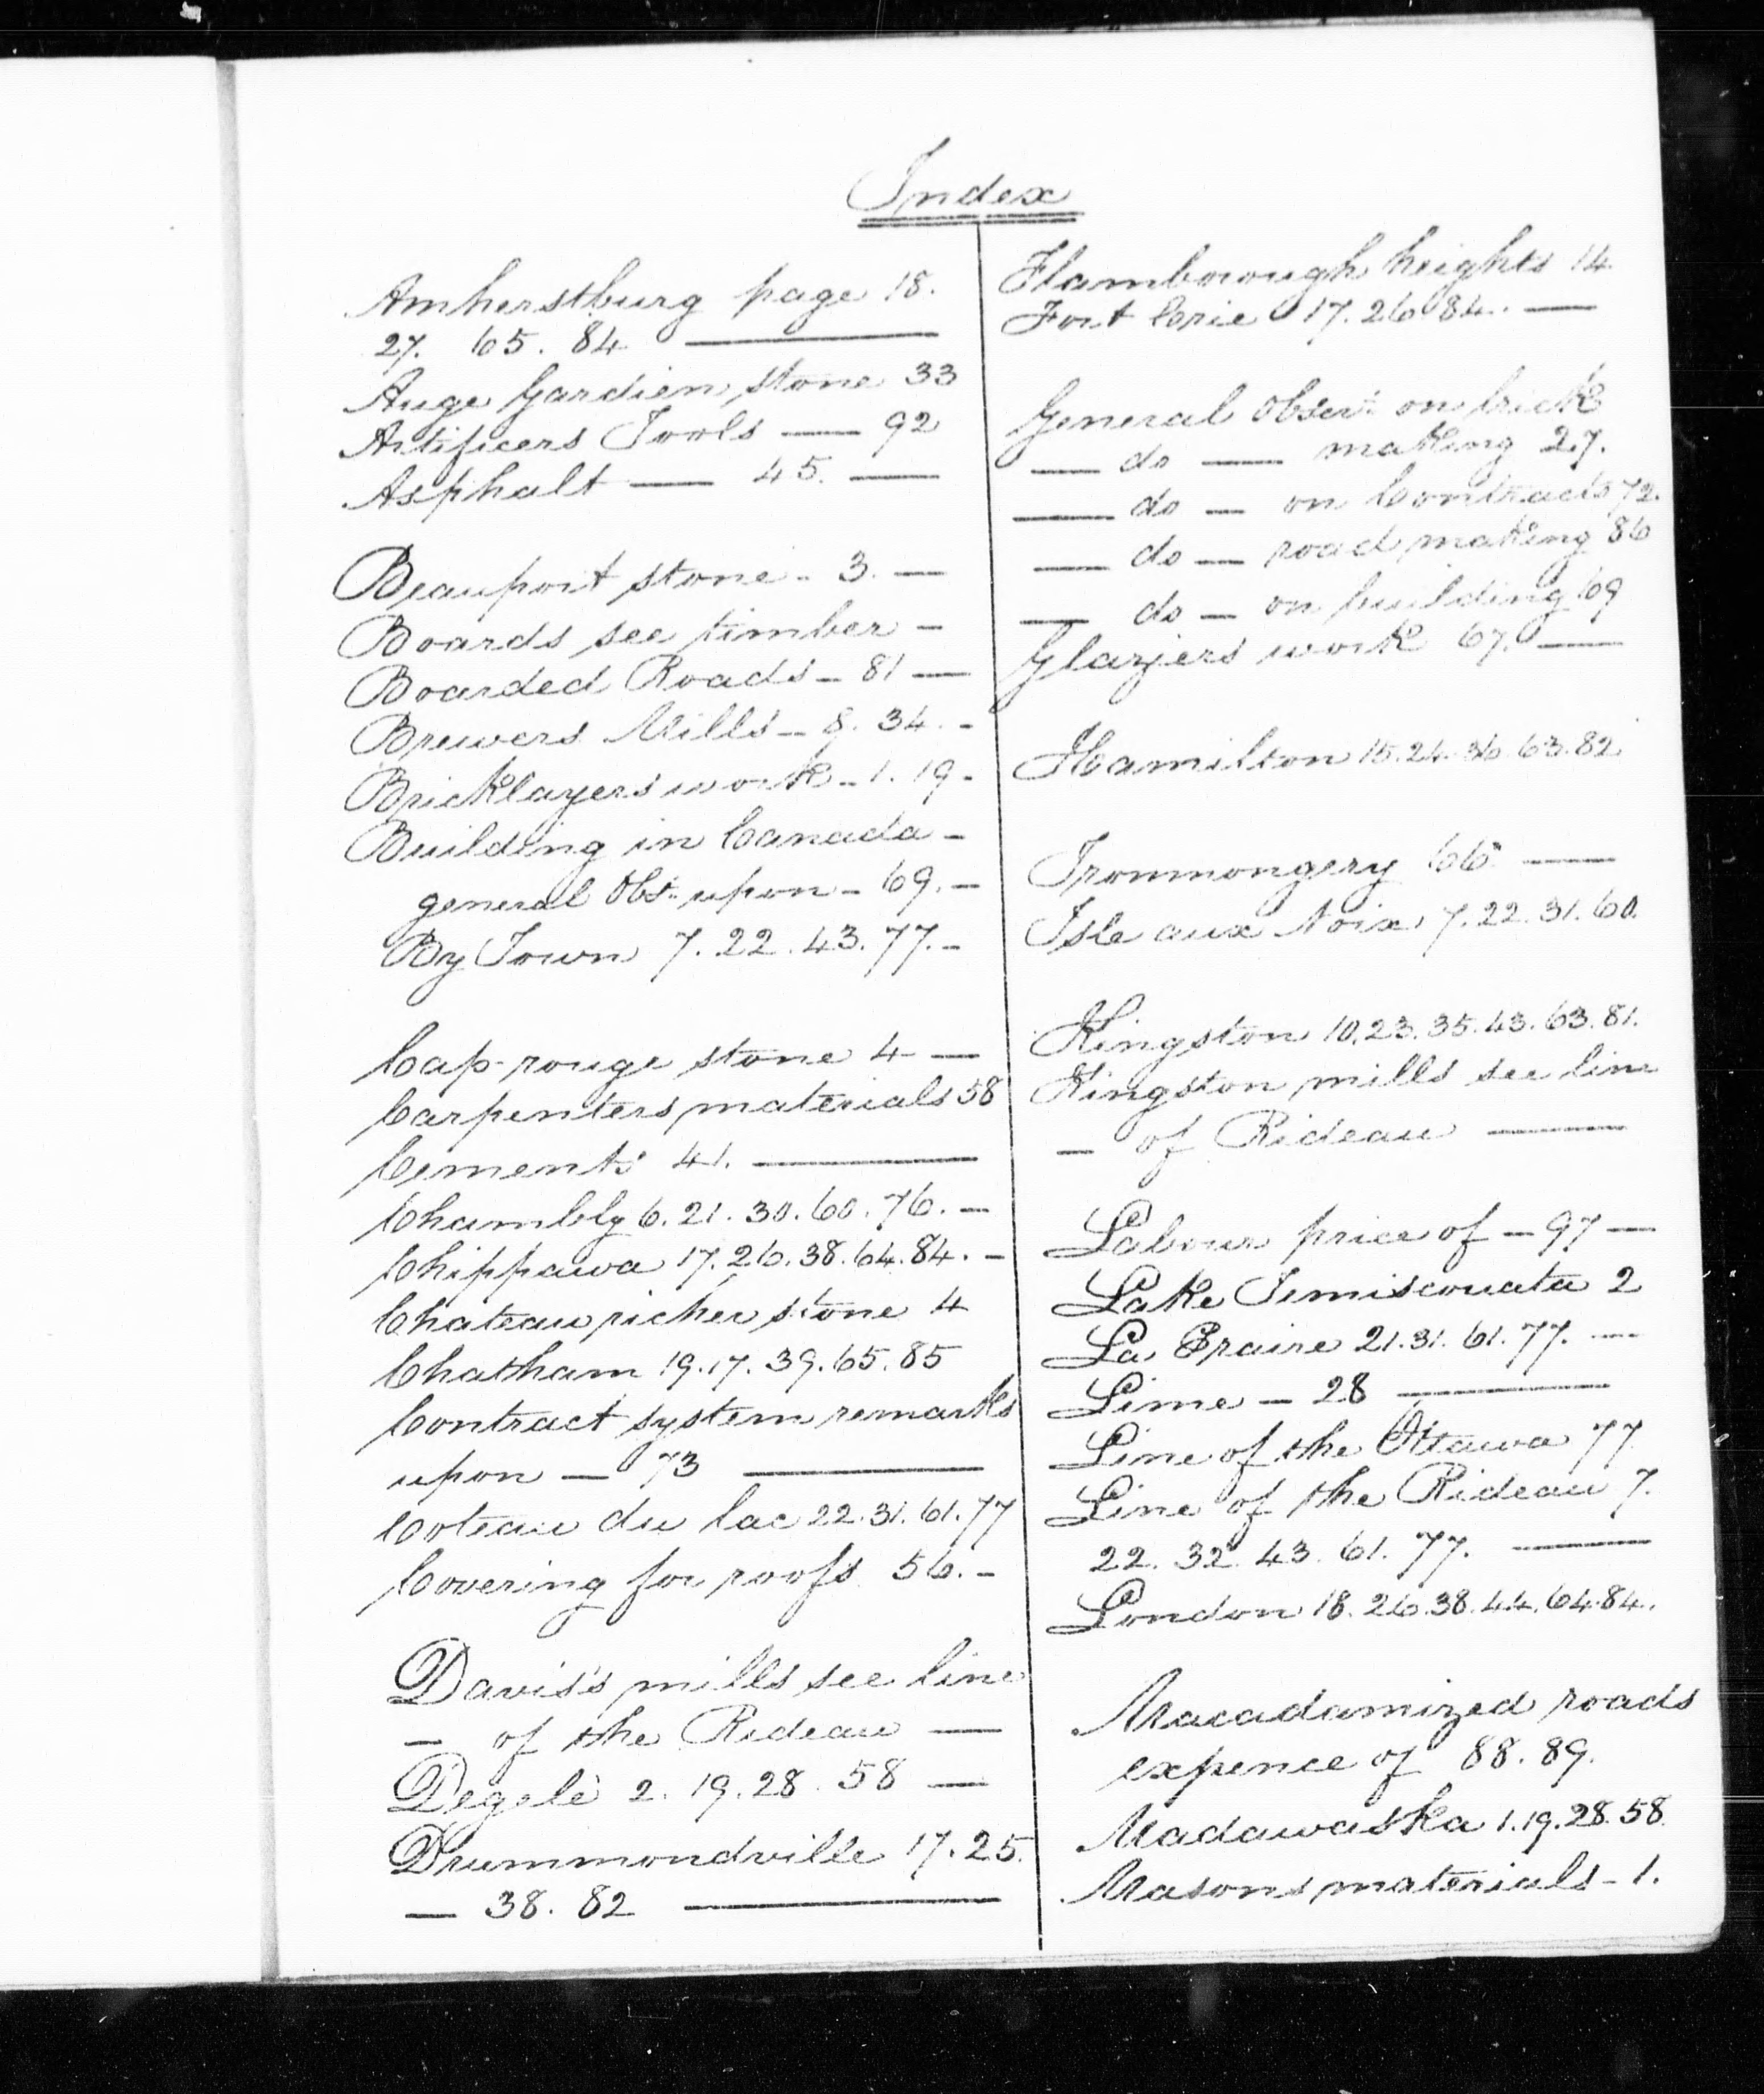 Index
Amherstburg page 18.
27. 65. 84 —
Ange Gardien stone 33
Artificers Tools — 92
Asphalt — 45. —
Beauport stone - 3. —
Boards see timber -
Boarded Roads - 81 —
Brewers Mills - 8. 34. -
Bricklayers work - 1. 19 -
Building in Canada -
general Obs:ⁿ upon - 69. -
By Town 7. 22. 43. 77. -
Cap-rouge stone 4 —
Carpenters materials 58
Cements 41. —
Chambly 6. 21. 30. 60. 76. —
Chippawa 17. 26. 38. 64. 84. -
Chateau richer stone 4
Chatham 19. 17. 39. 65. 85
Contract system remarks
upon — 73 —
Coteau du lac 22. 31. 61. 77
Covering for roofs 56. -
Davis's mills see line
- of the Rideau —
Degelé 2. 19. 28. 58 —
Drummondville 17. 25.
— 38. 82 —
Flamborough heights 14.
Fort Erie 17. 26 84. —
General Obser:ⁿ on brick
— do — making 27.
— do — on Contracts 72.
— do — road making 86
— do — on building 69
Glaziers work 67. —
Hamilton 15. 24. 36. 63. 82
Ironmongery 66 —
Isle aux Noix 7. 22. 31. 60.
Kingston 10. 23. 35. 43. 63. 81.
Kingston mills see line
— of Rideau —
Labour price of - 97 —
Lake Temiscouata 2
La Praire 21. 31. 61. 77. —
Lime - 28 —
Line of the Ottawa 77
Line of the Rideau 7.
22. 32. 43. 61. 77. —
London 18. 26. 38. 44. 64. 84.
Macadamized roads
expence of 88. 89.
Madawaska 1. 19. 28. 58
Masons materials - 1.